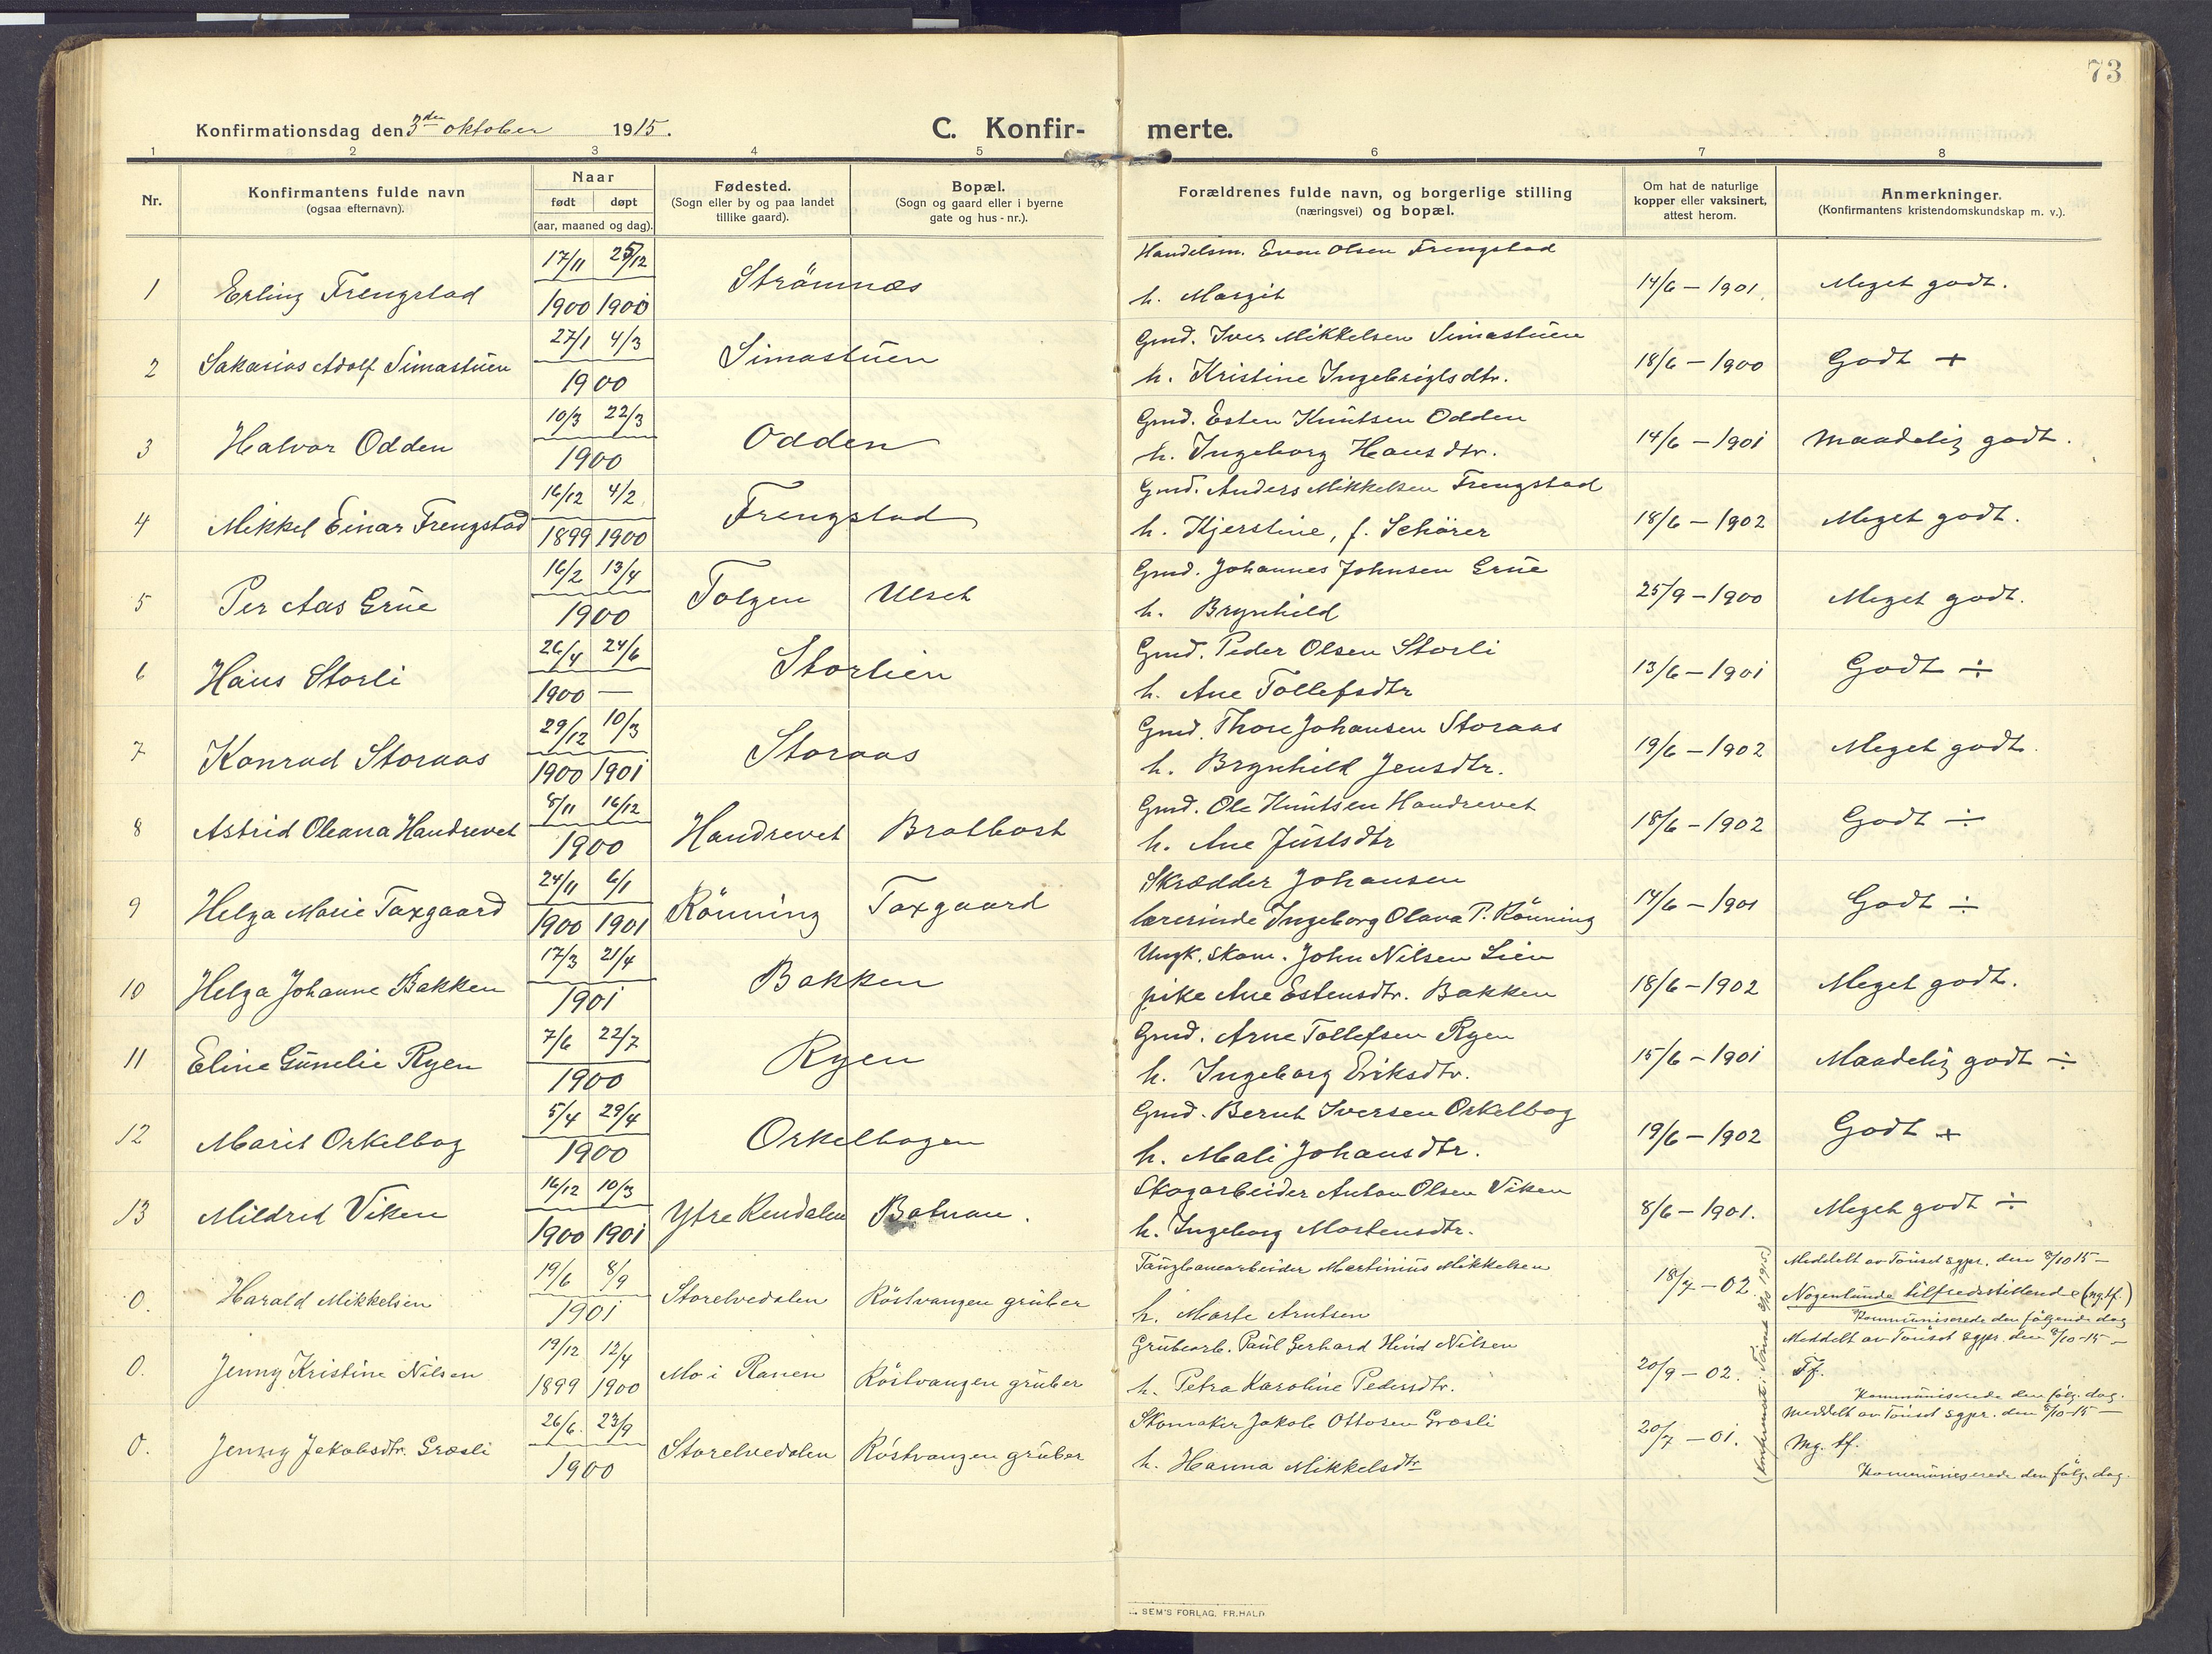 73
Konfirmationsdag den 3den oktober 1915.
C. Konfir- merte.
1 2 3 4 5 6 7 8
Nr.
Konfirmantens fulde navn
(ogsaa efternavn).
Naar
født døpt
(aar, maaned og dag).
Fødested.
(Sogn eller by og paa landet
tillike gaard).
Bopæl.
(Sogn og gaard eller i byerne
gate og hus - nr.).
Forældrenes fulde navn, og borgerlige stilling
(næringsvei) og bopæl.
Om hat de naturlige
kopper eller vaksinert,
attest herom.
Anmerkninger.
(Konfirmantens kristendomskundskap m. v.).
17/11 25/12 Handelsm. Even Olsen Frengstad
1 Erling Frengstad Strömnæs 14/6 - 1901. Meget godt.
1900 1900 h. Margit
27/1 4/3 Gmd. Iver Mikkelsen Simastuen
2 Sakarias Adolf Simastuen Simastuen 18/6 - 1900 Godt +
1900 h. Kristine Ingebrigtsdtr.
10/3 22/3 Gmd. Esten Knutsen Odden
3 Halvor Odden Odden 14/6 - 1901 Maadelig godt.
1900 h. Ingeborg Hansdtr.
16/12 4/2 Gmd. Anders Mikkelsen Frengstad
4 Mikkel Einar Frengstad Frengstad 18/6 - 1902 Meget godt.
1899 1900 h. Kjerstine, f. Schörer
16/2 13/4 Gmd. Johannes Johnsen Grue
5 Per Aas Grue Tolgen Ulset 25/9 - 1900 Meget godt.
1900 h. Brynhild
26/4 24/6 Gmd. Peder Olsen Storli
6 Hans Storli Storlien 13/6 - 1901 Godt ÷
1900 — h. Ane Tollefsdtr
29/12 10/3 Gmd. Thore Johansen Storaas
7 Konrad Storaas Storaas 19/6 - 1902 Meget godt.
1900 1901 h. Brynhild Jensdtr.
8/11 16/12 Gmd. Ole Knutsen Handrevet
8 Astrid Oleana Handrevet Handrevet Bratbost 18/6 - 1902 Godt ÷
1900 h. Ane Justsdtr
24/11 6/1 Skrædder Johansen
9 Helga Marie Taxgaard Rönning Taxgaard 14/6 - 1901 Godt ÷
1900 1901 lærerinde Ingeborg Olava P. Rönning
17/3 21/4 Ungk. skom. John Nilsen Lien
10 Helga Johanne Bakken Bakken 18/6 - 1902 Meget godt.
1901 pike Ane Estensdtr. Bakken
7/6 22/7 Gmd. Arne Tollefsen Ryen
11 Eline Gunelie Ryen Ryen 15/6 - 1901 Maadelig godt ÷
1900 h. Ingeborg Eriksdtr.
5/4 29/4 Gmd. Bernt Iversen Orkelbog
12 Marit Orkelbog Orkelbogen 19/6 - 1902 Godt +
1900 h. Mali Johansdtr.
16/12 10/3 Skogarbeider Anton Olsen Viken
13 Mildrid Viken Ytre Rendalen Botnan. 8/6 - 1901. Meget godt ÷
1900 1901 h. Ingeborg Mortensdtr.
19/6 8/9 Taugbanearbeider Martinius Mikkelsen Meddelt av Tönset sgpr. den 8/10 15 —
0. Harald Mikkelsen Storelvedalen Röstvangen gruber 18/7 - 02. Nogenlunde tilfredsstillende (ng.tf.)
1901 h. Marte Arntsen Kommuniserede den følgende dag
19/12 12/4 Grubearb. Paul Gerhard Hind Nilsen Meddelt av Tönset sgpr. den 8/10-15 —
0. Jenny Kristine Nilsen Mo i Ranen Röstvangen gruber 20/9 - 02. Tf.
1899 1900 h. Petra Karoline Pedersdtr. Kommuniserede den følg. dag.
26/6. 23/9 Skomaker Jakob Ottosen Græsli Meddelt av Tönset sgpr. den 8/10-15 —
0. Jenny Jakobsdtr. Græsli Storelvedalen Röstvangen gruber 20/7 - 01. Mg. tf.
1900 h. Hanna Mikkelsdtr Kommuniserede den følg. dag.
SEM'S FORLAG, FR. HALD